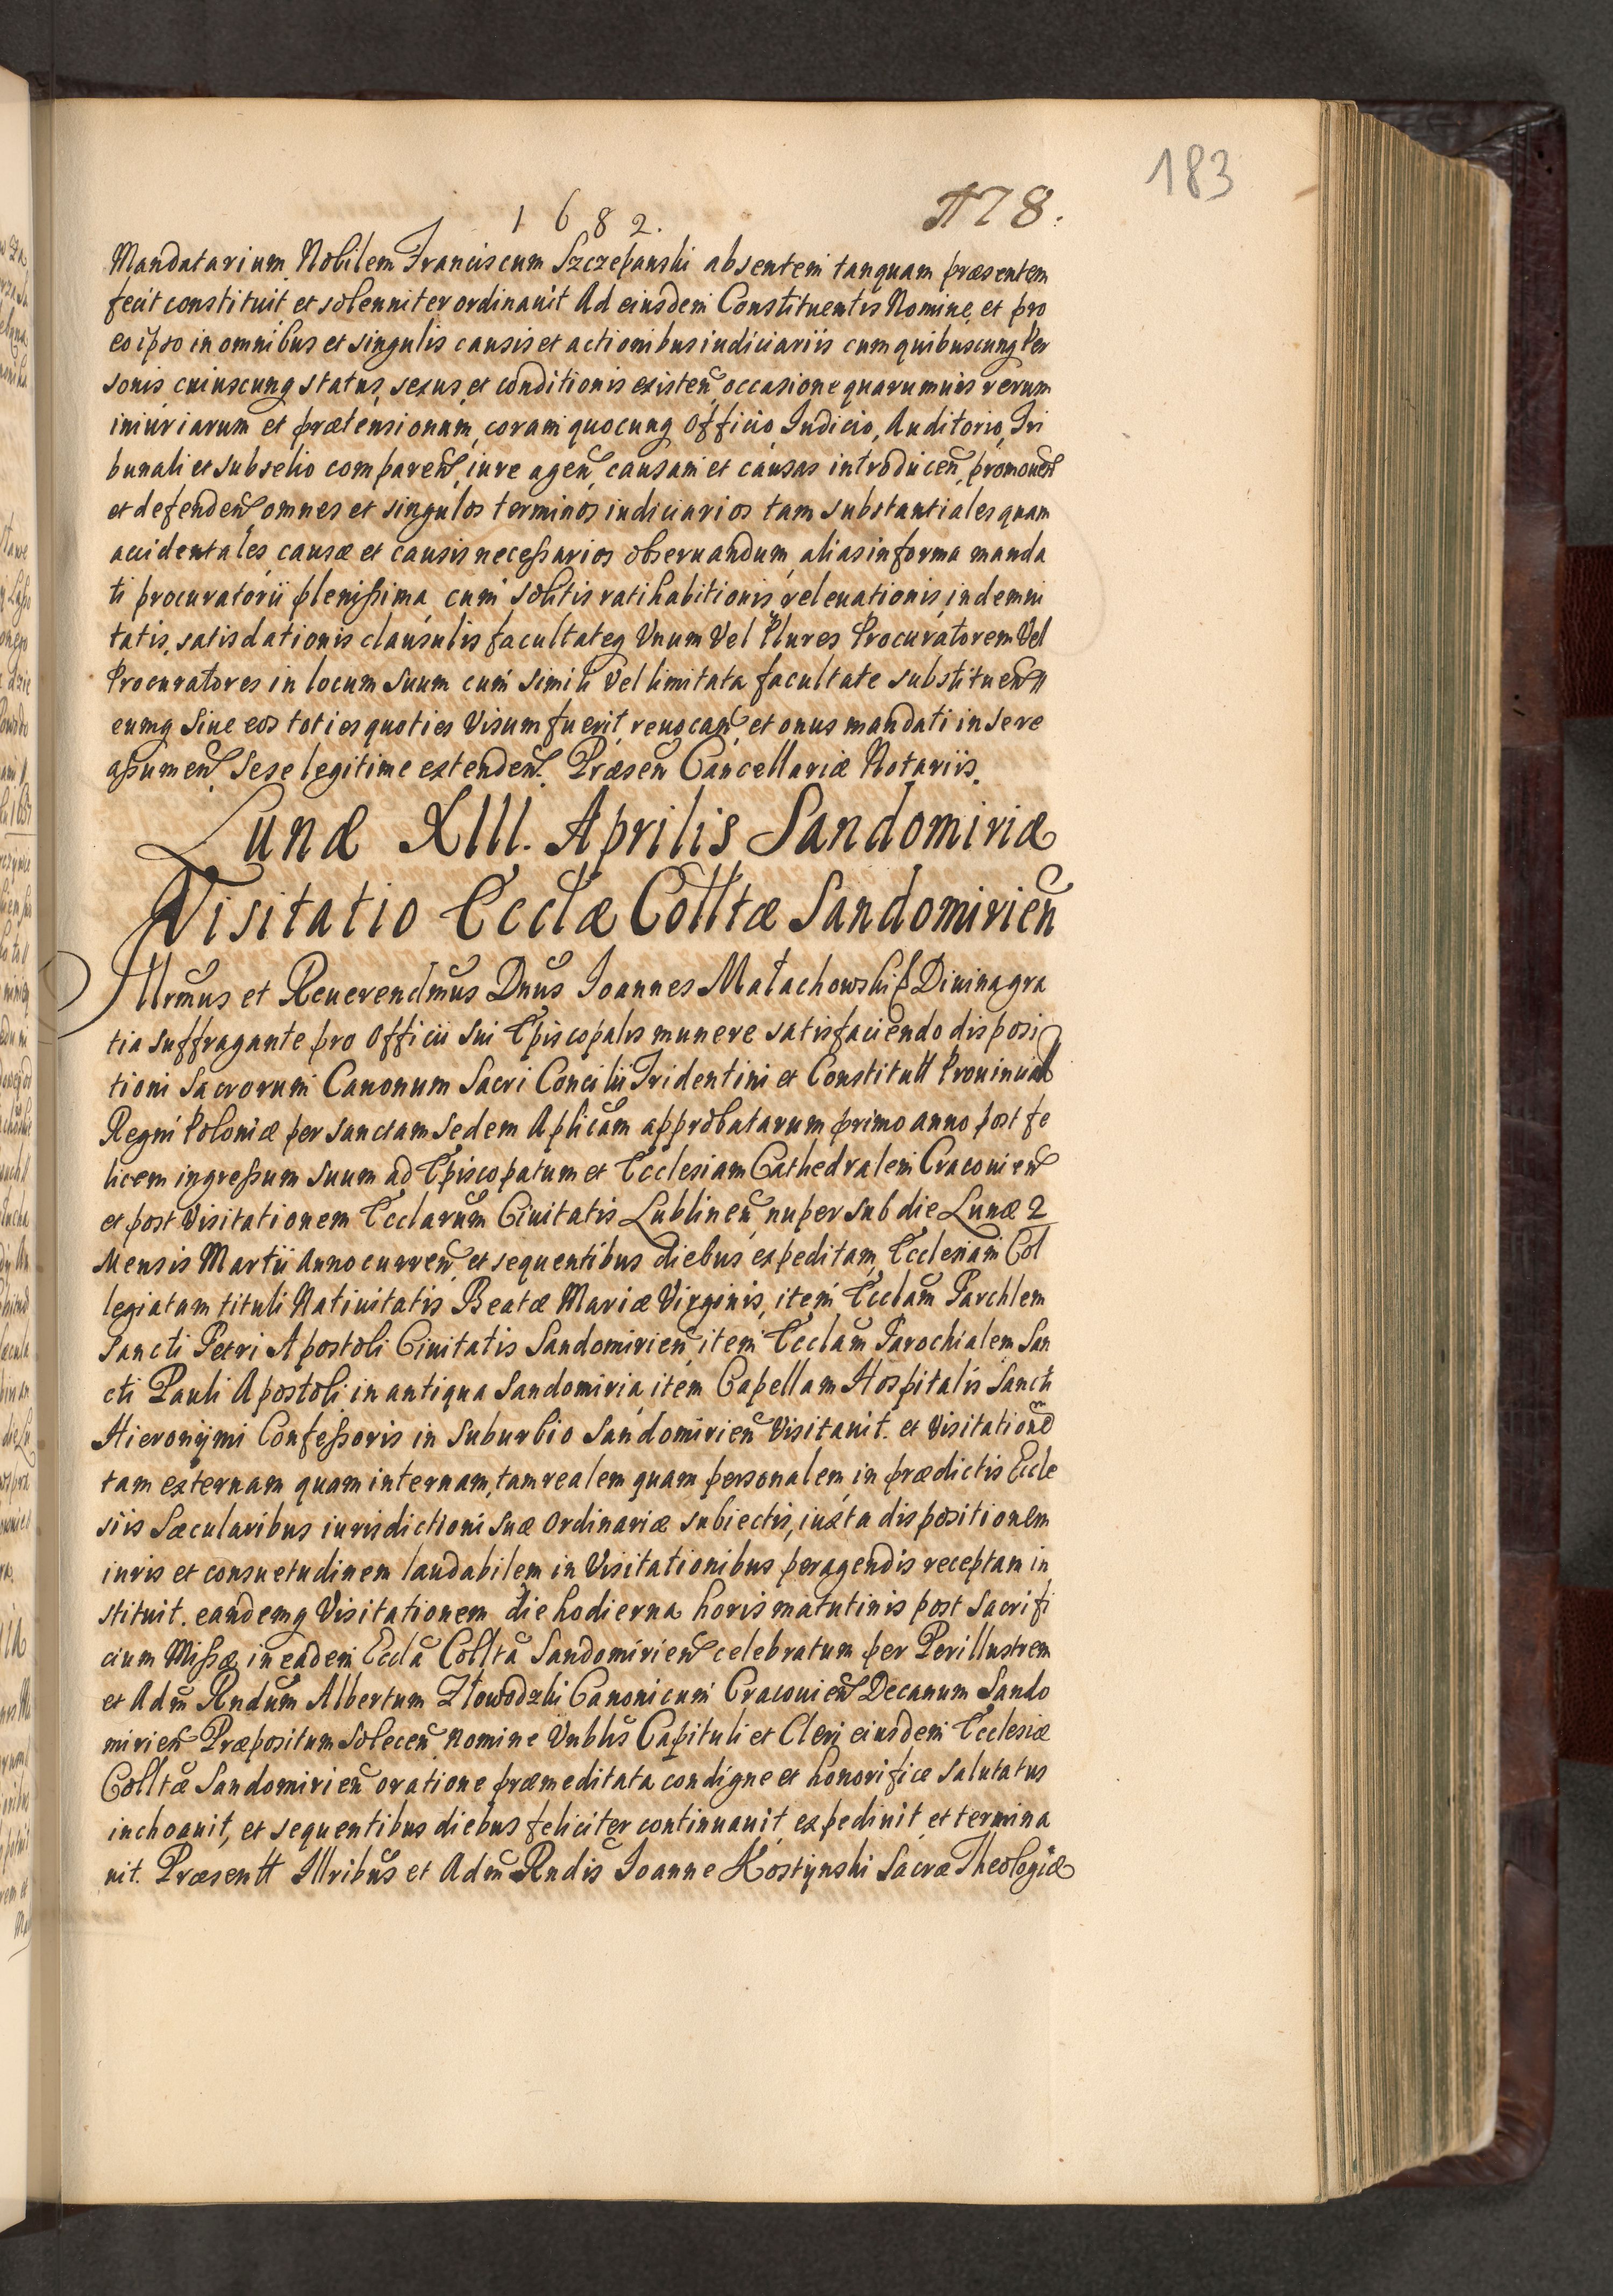 183
1682. 178.
Mandatarium Nobilem Franciscum Szczepanski absentem tanquam præsentem
fecit constituit et solenniter ordinauit Ad eiusdem Constituentis Nomine et pro
eo ipso in omnibus et singulis causis et actionibus iudiciariis cum quibuscunq Per
sonis cuiuscunq status, sexus et conditionis existeñ occasione quarumuis rerum
iniuriarum et prætensionum, coram quocunq Officio Iudicio, Auditorio, Tri
bunali et subselio compareñ, iure ageñ, causam et causas introduceñ, promoueñ
et defendeñ omnes et singulos terminos iudiciarios tam substantiales quam
accidentales, causæ et causis neceßarios obseruandum, alias in forma manda
ti procuratorii plenißima cum solitis ratihabitionis, releuationis, indemni
tatis, satisdationis clausulis facultateq Vnum Vel Plures Procuratorem Vel
Procuratores in locum suum cum simili Vel limitata facultate substitueñ
eumq siue eos toties quoties Visum fuerit reuocañ et onus mandati in se re
aßumeñ sese legitime extendeñ. Præseñ Cancellariæ Notariis.
Lunæ XIII. Aprilis Sandomiriæ
Visitatio Ecclæ Colltæ Sandomirieñ
Illrmus et Reuerendmus Dnus Ioannes Małachowski Diuina gra
tia suffragante pro Officii sui Episcopalis munere satisfaciendo disposi
tioni Sacrorum Canonum Sacri Concilii Tridentini et Constitutt Prouincial
Regni Poloniæ per sanctam Sedem Aplicam approbatarum primo anno post fe
licem ingreßum suum ad Episcopatum et Ecclesiam Cathedralem Cracouieñ
et post Visitationem Ecclarum Ciuitatis Lublineñ nuper sub die Lunæ 2
Mensis Martii Anno curreñ et sequentibus diebus expeditam, Ecclesiam Col
legiatam tituli Natiuitatis Beatæ Mariæ Virginis, item Ecclam Parchlem
Sancti Petri Apostoli Ciuitatis Sandomirieñ, item Ecclam Parochialem San
cti Pauli Apostoli in antiqua Sandomiria, item Capellam Hospitalis Sancti
Hieronijmi Confeßoris in Suburbio Sandomirieñ Visitauit. et Visitationem
tam externam quam internam, tam realem quam personalem, in prædictis Eccle
siis Sæcularibus iurisdictioni suæ Ordinariæ subiectis, iuxta dispositionem
iuris et consuetudinem laudabilem in Visitationibus peragendis receptam in
stituit. eandemq Visitationem die hodierna horis matutinis post Sacrifi
cium Mißæ in eadem Eccla Collta Sandomirieñ celebratum per Perillustrem
et Adm Rndum Albertum Złowodzki Canonicum Cracouieñ Decanum Sando
mirieñ Præpositum Soleceñ nomine Vnblis Capituli et Cleri eiusdem Ecclesiæ
Colltæ Sandomirieñ oratione præmeditata condigne et honorifice salutatus
inchoauit, et sequentibus diebus feliciter continuauit, expediuit et termina
uit. Præsentt Illribus et Adm Rndis Ioanne Kostynski Sacræ Theologiæ